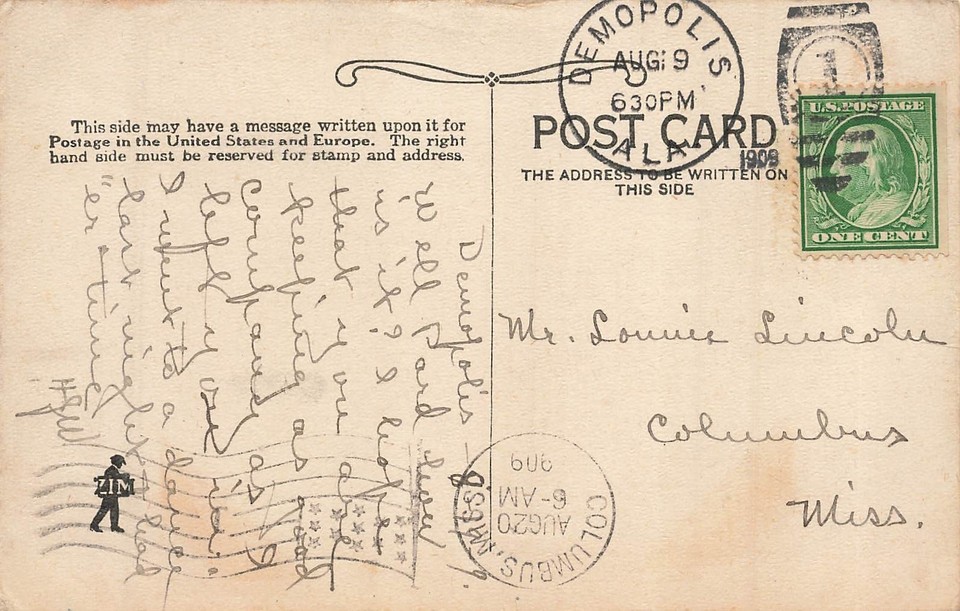 This side may have a message written upon it for
Postage in the United States and Europe. The right
hand side must be reserved for stamp and address.
Demopolis –
Well Pard how
is it? I hope
that you are
keeping as good
company as
left you in.
I went to a dance
last night & had
"er-time"
ZIM
DEMOPOLIS
AUG 19
630PM
ALA.
1909
1
POST CARD
THE ADDRESS TO BE WRITTEN ON
THIS SIDE
U.S. POSTAGE
ONE CENT
Mr. Lonnie Lincoln
Columbus
Miss.
COLUMBUS, MISS.
AUG20
6-AM
909